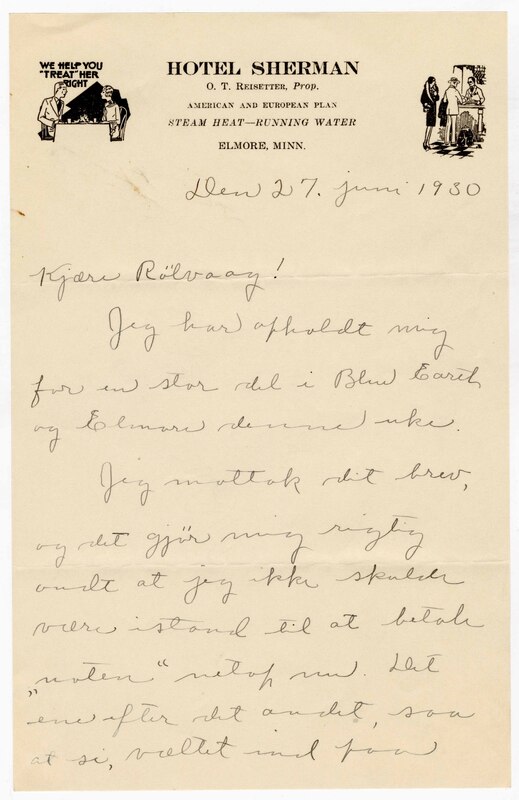 WE HELP YOU
"TREAT" HER
RIGHT
HOTEL SHERMAN
O. T. REISETTER, Prop.
AMERICAN AND EUROPEAN PLAN
STEAM HEAT—RUNNING WATER
ELMORE, MINN.
Den 27. juni 1930
Kjære Rölvaag!
Jeg har opholdt mig
for en stor del i Blue Earth
og Elmore denne uke.
Jeg mottok dit brev,
og det gjör mig rigtig
ondt at jeg ikke skulde
være istand til at betale
„noten“ netop nu. Det
ene efter det andet, saa
at si, væltet ind paa